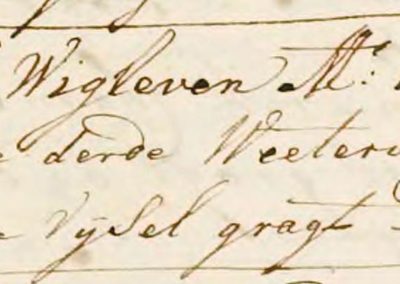 Wigleven Mr:
e derde Weeter
Vijsel gragt